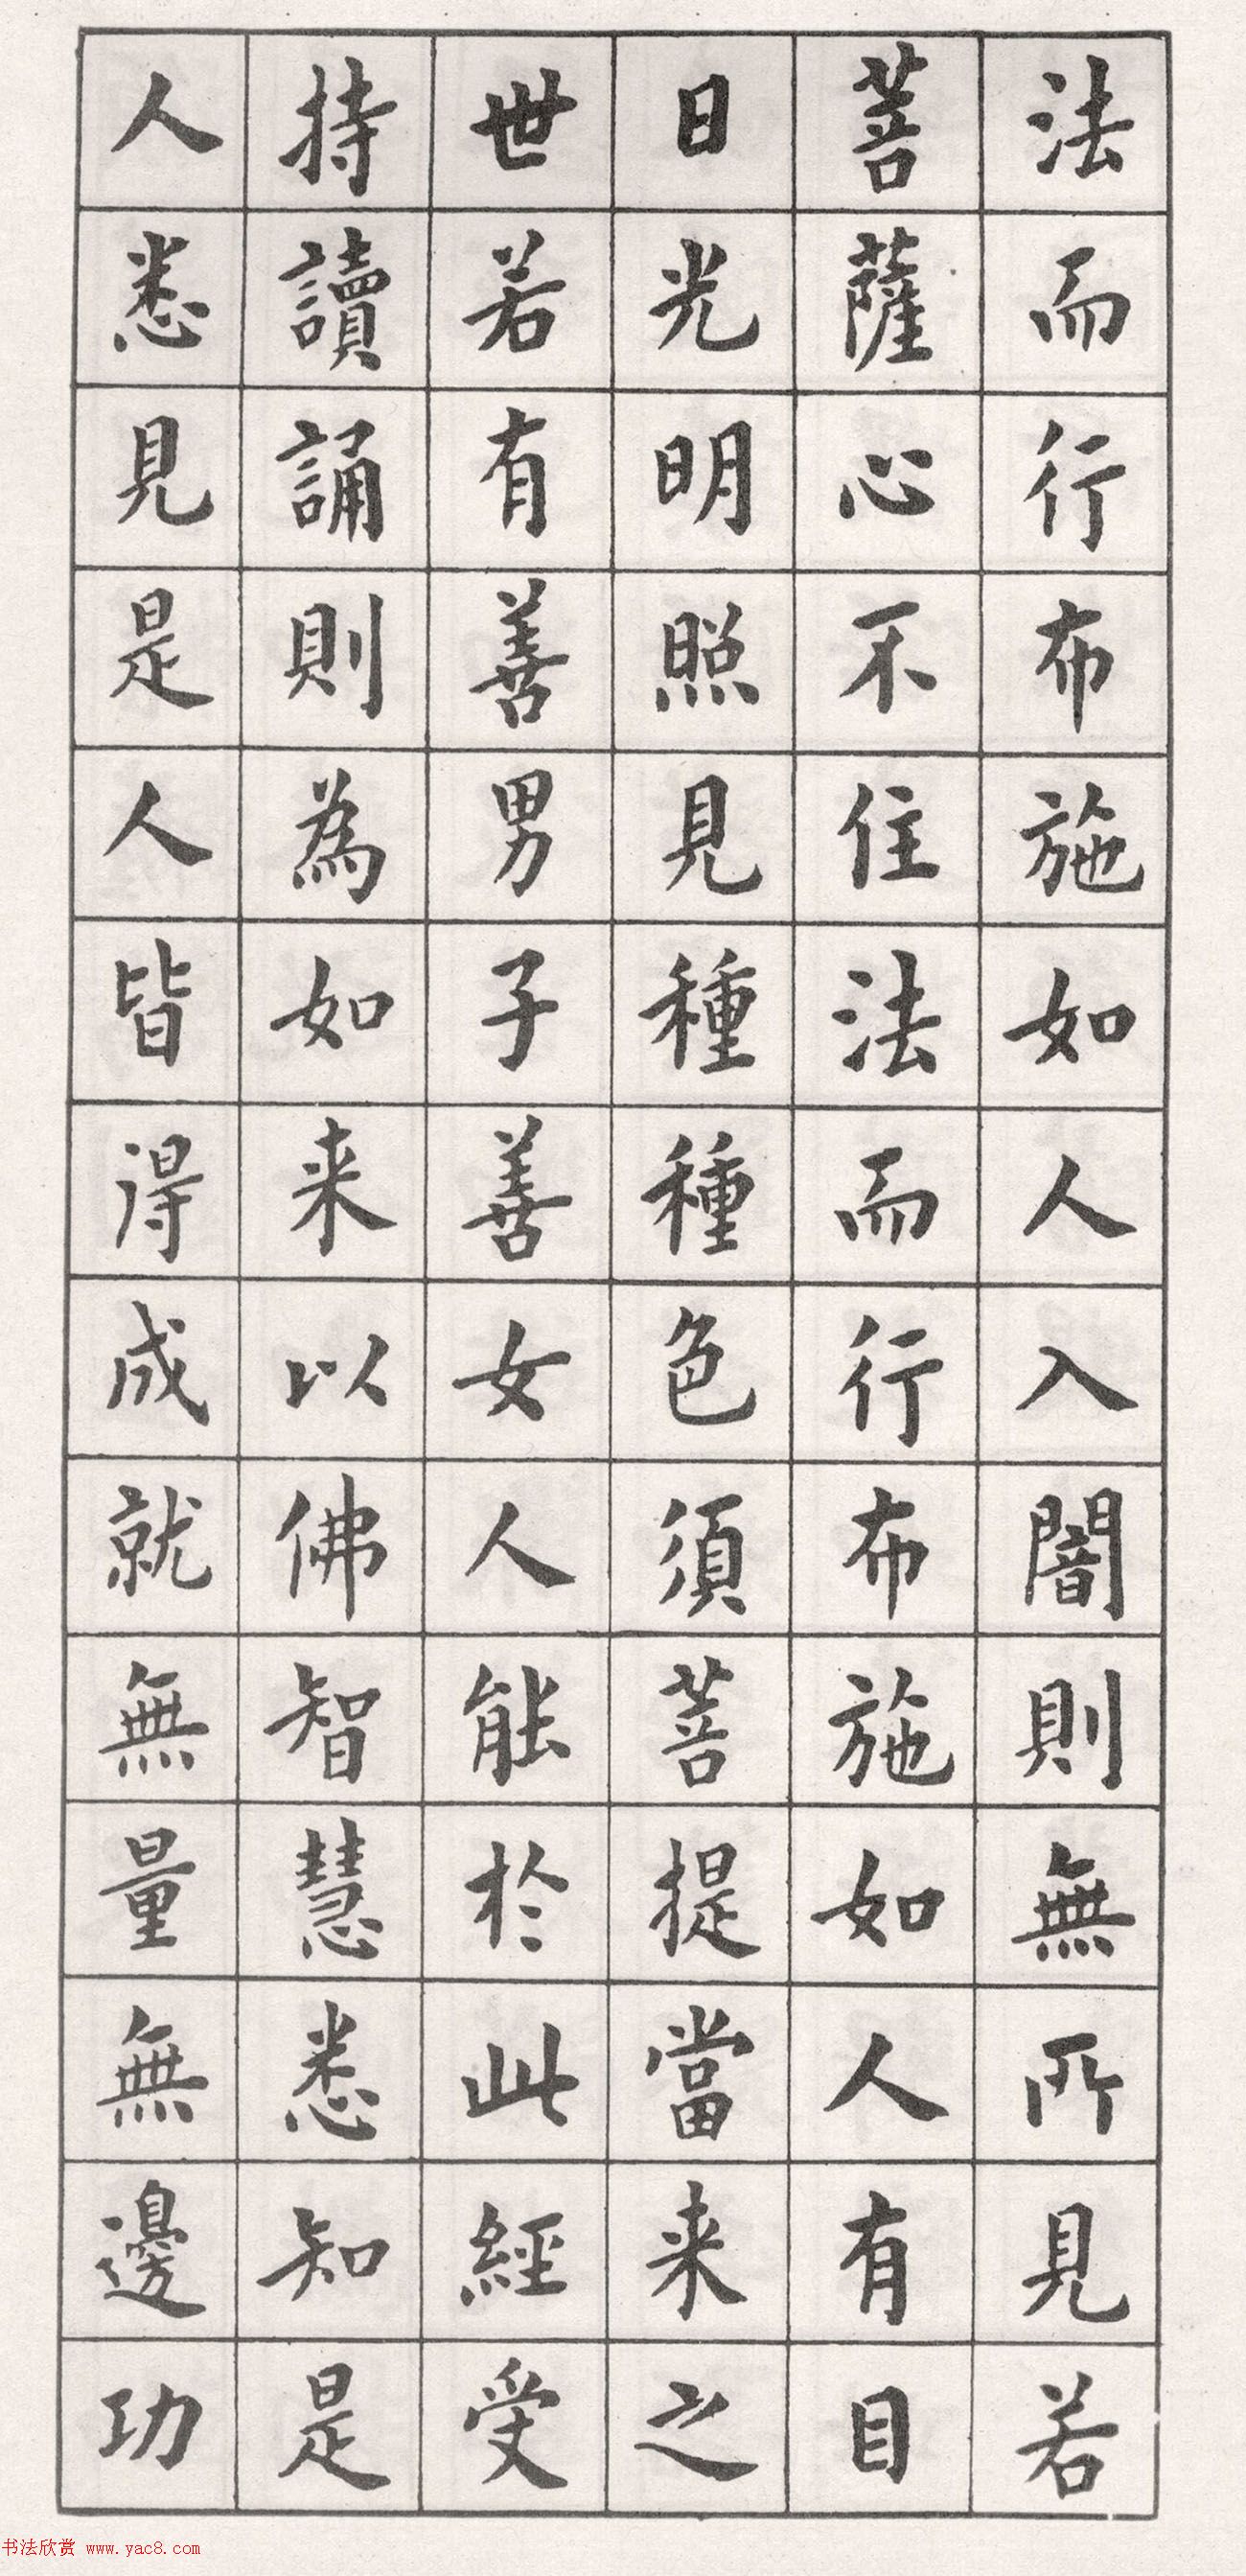 法而行布施如人入闇則無所見若
菩薩心不住法而行布施如人有目
日光明照見種種色須菩提當来之
世若有善男子善女人能於此經受
持讀誦則為如来以佛智慧悉知是
人悉見是人皆得成就無量無邊功
书法欣赏 www.yac8.com